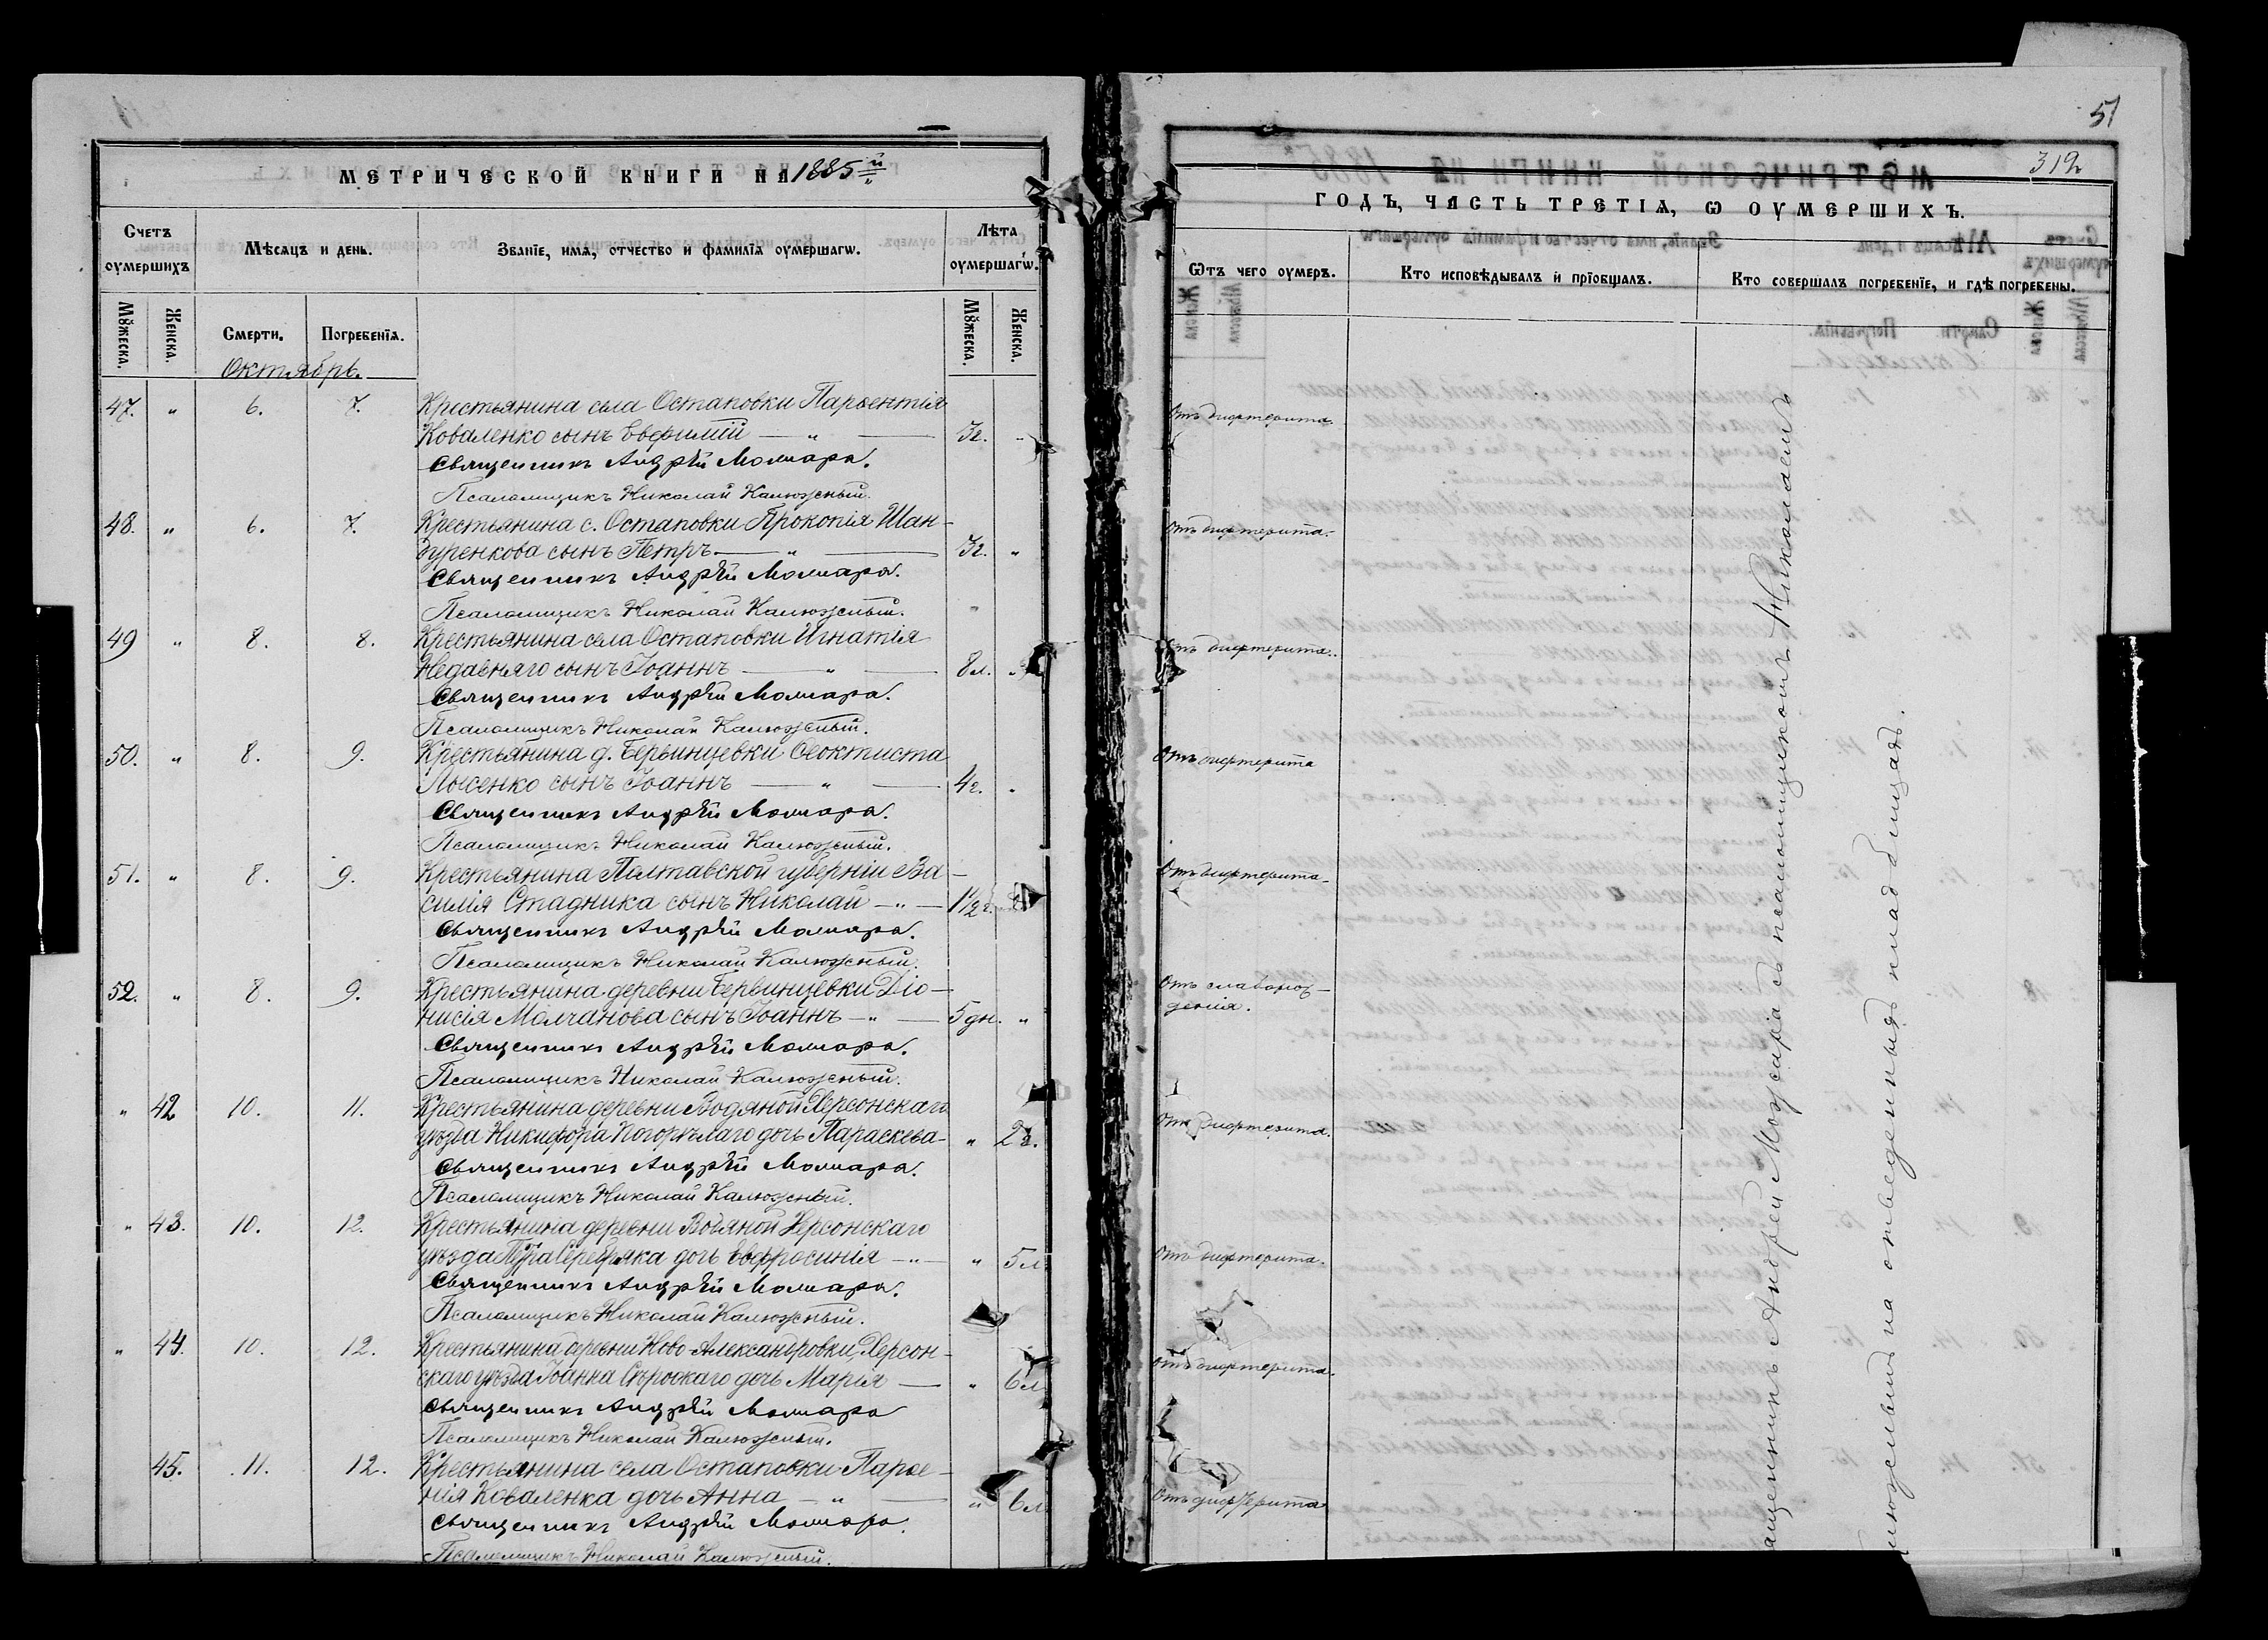 МЕТРИЧЕСКОЙ КНИГИ НА 1885й
Счетъ оумершихъ
Мѣсяцъ и день.
Званїе, имѧ, отчество и фамилїѧ оумершагѡ.
Лѣта оумершагѡ.
Мꙋжеска.
Женска.
Смерти.
Погребенїѧ.
Мꙋжеска.
Женска.
Октябрь.
47. " 6. 7. Крестьянина села Остаповки Парѳентія
Коваленко сынъ Евфимій — " — 3г. "
Священникъ Андрей
Псаломщикъ Николай Калюжный.
48. " 6. 7. Крестьянина с. Остаповки Прокопія Шан-
дуренкова сынъ Петръ — " — 3г. "
Священникъ Андрей
Псаломщикъ Николай Калюжный.
49 " 8. 8. Крестьянина села Остаповки Игнатія
Недавняго сынъ Іоаннъ — " — 8л. "
Священникъ Андрей
Псаломщикъ Николай Калюжный.
50. " 8. 9. Крестьянина д. Ѳеоктиста
Лысенко сынъ Іоаннъ — " — 4г. "
Священникъ Андрей
Псаломщикъ Николай Калюжный.
51. " 8. 9. Крестьянина Полтавской губерніи Ва-
силія Стадника сынъ Николай — " — 1½ г.
Священникъ Андрей
Псаломщикъ Николай Калюжный.
52. " 8. 9. Крестьянина деревни Діо-
нисія Молчанова сынъ Іоаннъ — " — 5дн. "
Священникъ Андрей
Псаломщикъ Николай Калюжный.
" 42 10. 11. Крестьянина деревни Водяной Херсонскаго
уѣзда Никифора Погорѣлаго дочь Параскева — " 2г.
Священникъ Андрей
Псаломщикъ Николай Калюжный.
" 43. 10. 12. Крестьянина деревни Водяной Херсонскаго
уѣзда дочь Евфросинія — " — " 5л
Священникъ Андрей
Псаломщикъ Николай Калюжный.
" 44. 10. 12. Крестьянина деревни Ново-Александровки, Херсон-
скаго уѣзда Іоанна дочь Марія — " 6л
Священникъ Андрей
Псаломщикъ Николай Калюжный.
45. 11. 12. Крестьянина села Остаповки Парѳе-
нія Коваленка дочь Анна — " — " 6л
Священникъ Андрей
Псаломщикъ Николай Калюжный.
51
312
ГОДЪ, ЧАСТЬ ТРЕТІѦ, Ѡ ОУМЕРШИХЪ.
Ѿтъ чего оумеръ.
Кто исповѣдывалъ и прїобщалъ.
Кто совершалъ погребенїе, и гдѣ погребены.
Отъ дифтерита
Отъ дифтерита.
Отъ дифтерита.
Отъ дифтерита
Отъ дифтерита
Отъ слаборож-
денія.
Отъ дифтерита.
Отъ дифтерита.
Отъ дифтерита.
Отъ дифтерита
Андрей съ псаломщикомъ Николаемъ
на отведенныхъ кладбищахъ.